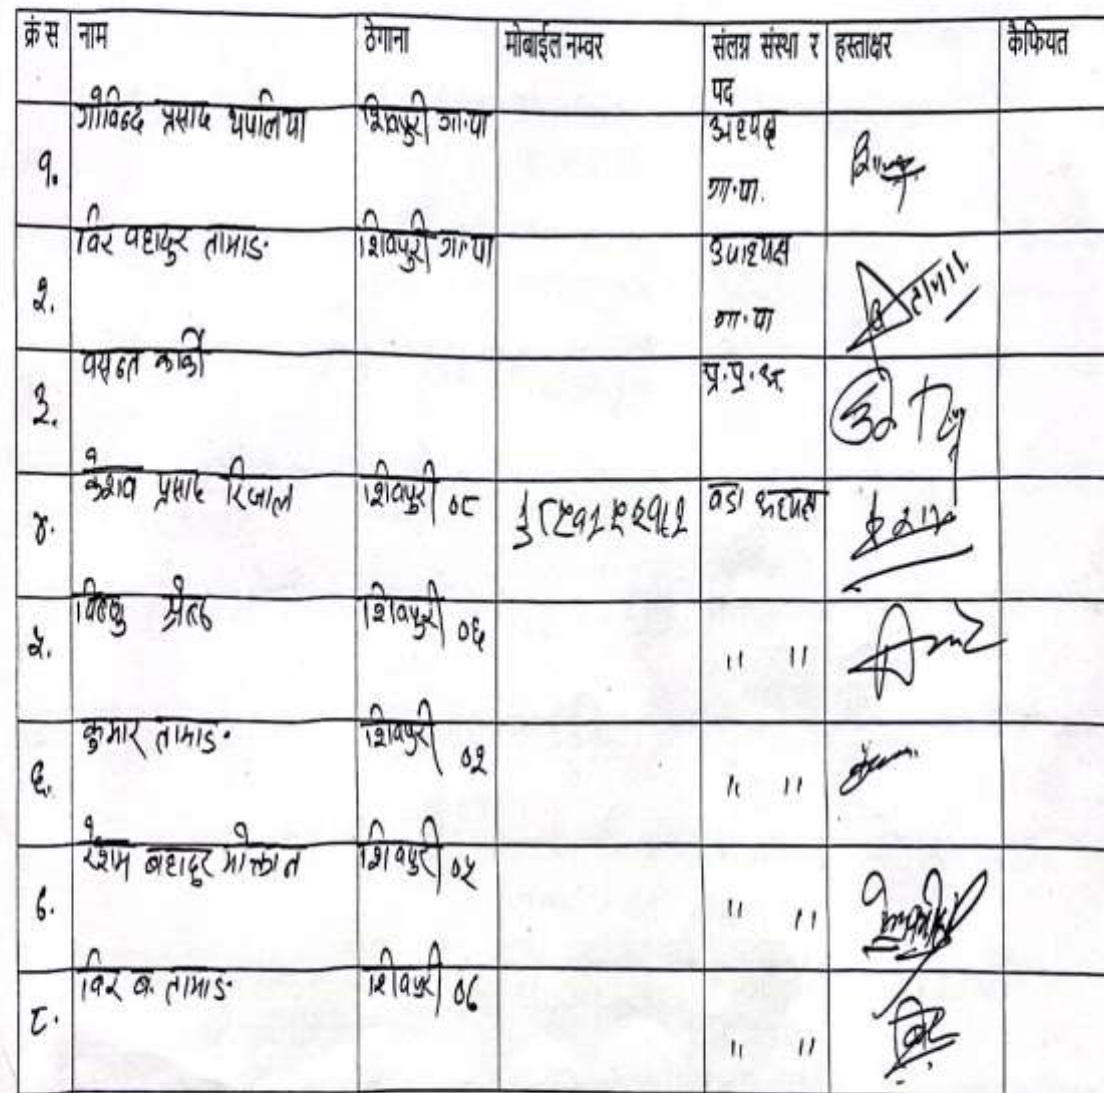 क्रं स नाम ठेगाना मोबाईल नम्वर संलग्न संस्था र हस्ताक्षर कैफियत
पद
१. गोविन्द प्रसाद थपलिया शिवपुरी गा.पा अध्यक्ष
गा.पा.
२. विर वहादुर तामाङ शिवपुरी गा.पा उपाध्यक्ष
गा.पा
३. वसन्त कार्की प्र.प्र.अ.
४. केशव प्रसाद रिजाल शिवपुरी ०८ वडा अध्यक्ष
५. विष्णु श्रेष्ठ शिवपुरी ०६ " "
६. कुमार तामाङ शिवपुरी ०२ " "
७. रेशम बहादुर मोक्तान शिवपुरी ०५ " "
८. विर ब. तामाङ शिवपुरी " "